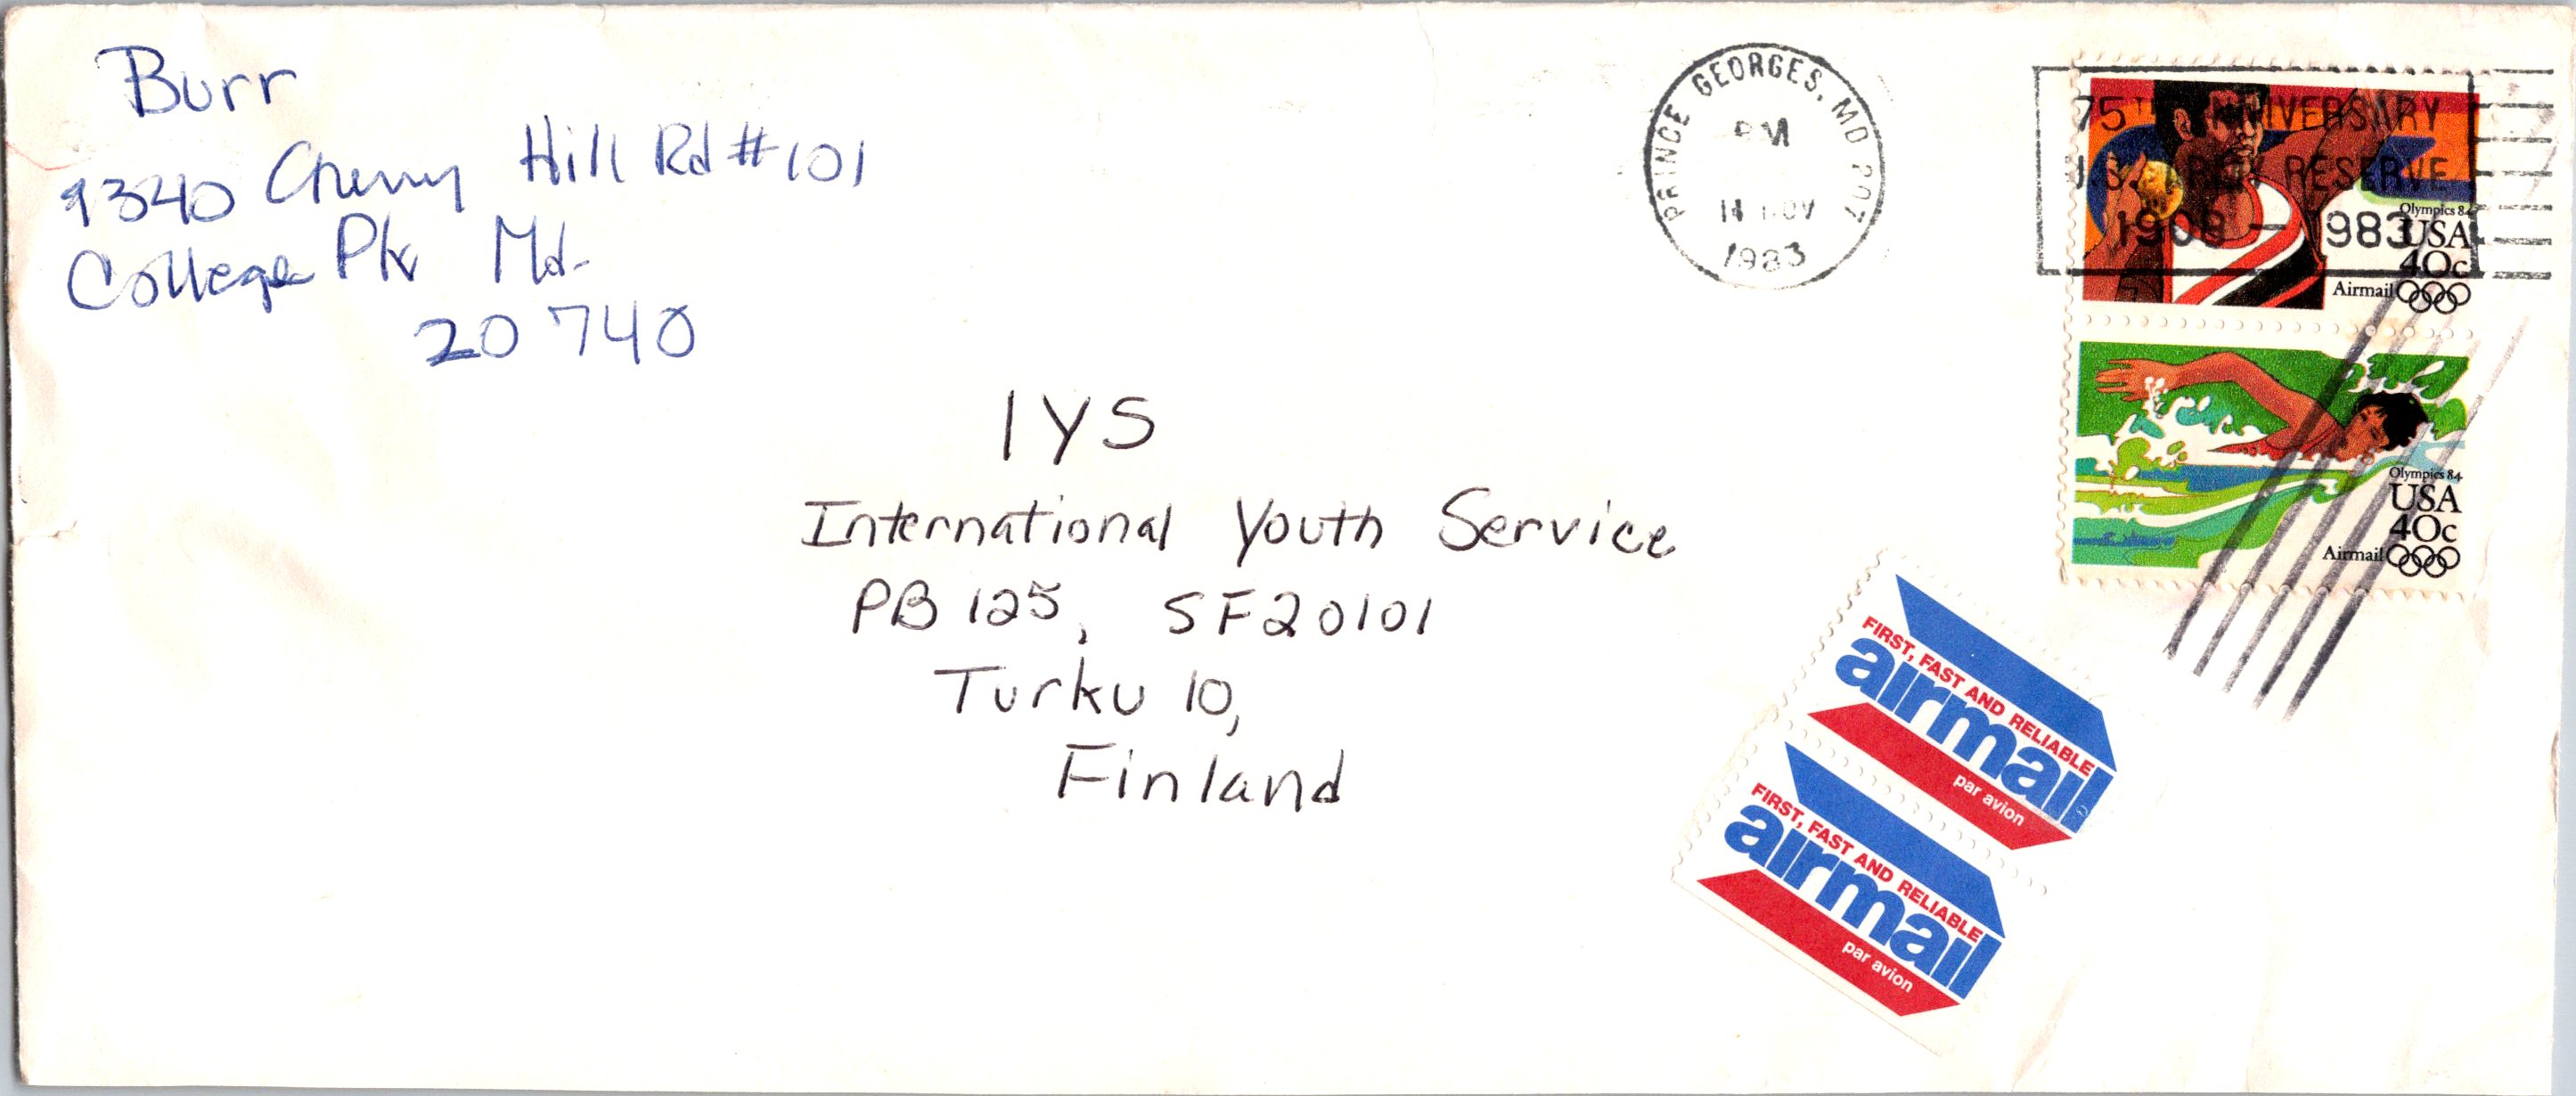 Burr
9340 Cherry Hill Rd #101
College Pk Md.
20740
PRINCE GEORGES, MD 207
PM
14 NOV
1983
75TH ANNIVERSARY
U.S. ARMY RESERVE
1908 - 1983
Olympics 84
USA
40c
Airmail
Olympics 84
USA
40c
Airmail
IYS
International Youth Service
PB 125, SF20101
Turku 10,
Finland
FIRST, FAST AND RELIABLE
airmail
par avion
FIRST, FAST AND RELIABLE
airmail
par avion